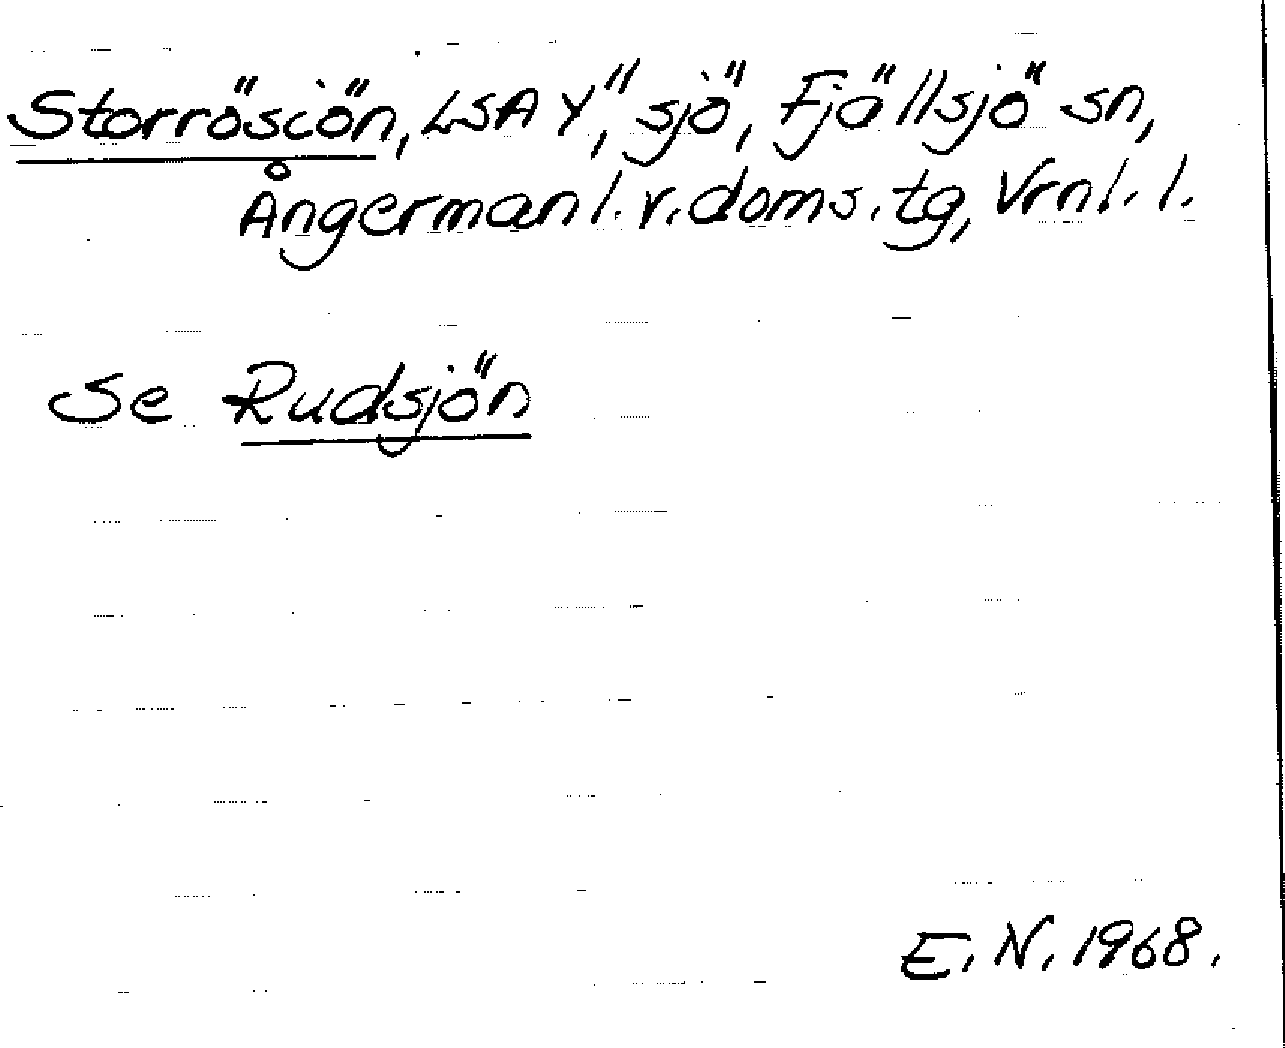 Storrösiön, LSA Y, "sjö", Fjällsjö sn,
Ångermanl. v. doms. tg, Vrnl. l.
Se Rudsjön
E. N. 1968.